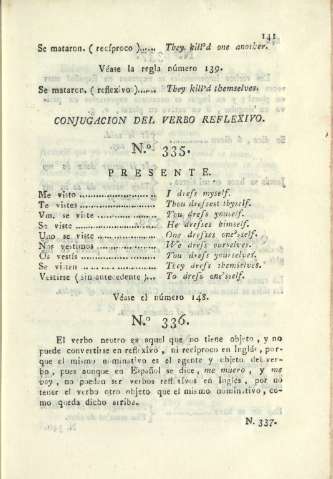 141
Se mataron. ( recíproco )...... They kill'd one another.
Véase la regla número 139.
Se mataron. ( reflexîvo )...... They kill'd themselves.
CONJUGACION DEL VERBO REFLEXIVO.
N.º 335.
PRESENTE.
Me visto ........................ I dress myself.
Te vistes ........................ Thou dressest thyself.
Vm. se viste .................... You dress yourself.
Se viste ........................ He dresses himself.
Uno se viste .................... One dresses one'sself.
Nos vestimos .................... We dress ourselves.
Os vestís ........................ You dress yourselves.
Se visten ........................ They dress themselves.
Vestirse ( sin antecedente )... To dress one'sself.
Véase el número 148.
N.º 336.
El verbo neutro es aquel que no tiene objeto, y no
puede convertirse en reflexîvo, ni recíproco en Inglés, por-
que el mismo nominativo es el agente y objeto del ver-
bo, pues aunque en Español se dice, me muero, y me
voy, no pueden ser verbos reflexîvos en Inglés, por nó
tener el verbo otro objeto que el mismo nominativo, co-
mo queda dicho arriba.
N. 337.